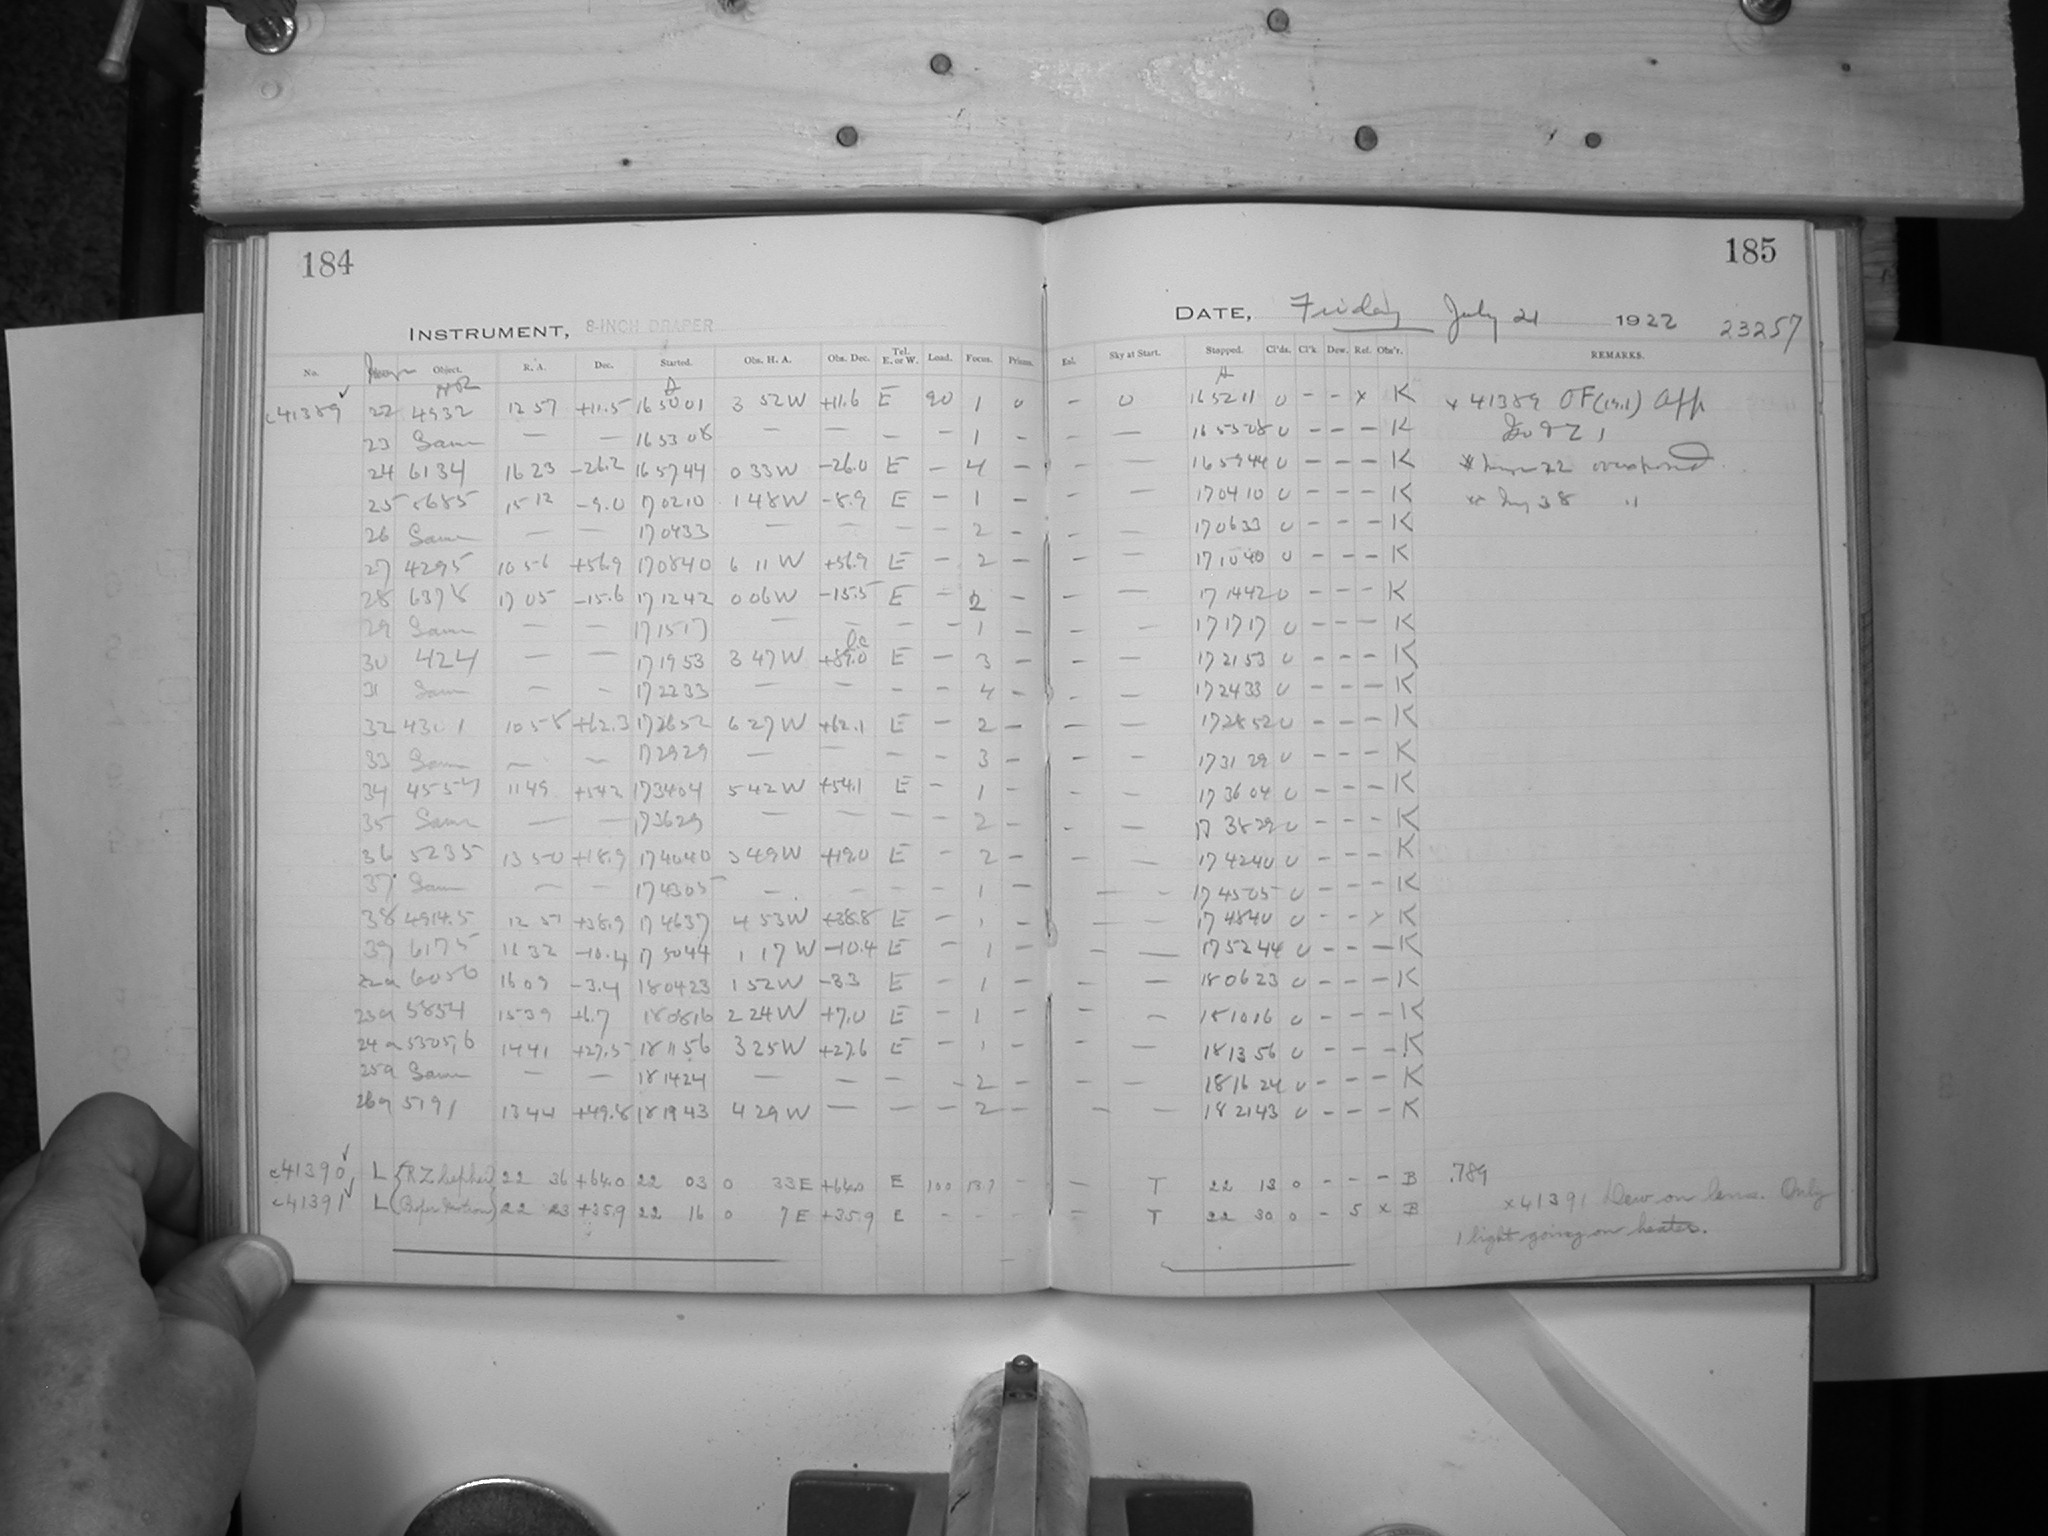 184
INSTRUMENT, 8-INCH DRAPER
No. Object. R. A. Dec. Started. Obs. H. A. Obs. Dec. Tel. E. or W. Load. Focus. Prisms.
c41389 ✓ 22 4932 12 57 +11.5 16 50 01 3 52 W +11.6 E 90 1 0
23 Same — — 16 53 08 — — - - 1 -
24 6134 16 23 -26.2 16 57 44 0 33 W -26.0 E - 4 -
25 5685 15 12 -9.0 17 02 10 1 48 W -8.9 E - 1 -
26 Same — — 17 04 33 — — - - 2 -
27 4295 10 56 +56.9 17 08 40 6 11 W +56.9 E - 2 -
28 6378 17 05 -15.6 17 12 42 0 06 W -15.5 E - 2 -
29 Same — — 17 15 17 — — - - 1 -
30 424 — — 17 19 53 3 47 W +89.0 E - 3 -
31 Same — - 17 22 33 — — - - 4 -
32 4301 10 58 +62.3 17 26 52 6 27 W +62.1 E - 2 -
33 Same — — 17 29 29 — — - - 3 -
34 4554 11 49 +54.2 17 34 04 5 42 W +54.1 E - 1 -
35 Same — — 17 36 29 — — - - 2 -
36 5235 13 50 +18.9 17 40 40 3 49 W +19.0 E - 2 -
37 Same — — 17 43 05 — — - - 1 -
38 4914.5 12 51 +38.9 17 46 37 4 53 W +38.8 E - 1 -
39 6175 16 32 -10.4 17 50 44 1 17 W -10.4 E 1 -
22a 6056 16 09 -3.4 18 04 23 1 52 W -3.3 E - 1 -
23a 5854 15 39 +6.7 18 08 16 2 24 W +7.0 E - 1 -
24a 5305,6 14 41 +27.5 18 11 56 3 25 W +27.6 E - 1 -
25a Same — — 18 14 24 — — - - 2 -
26a 5191 13 44 +49.8 18 19 43 4 29 W — - - 2 -
c41390 ✓ L {RZ Cephei} 22 36 +64.0 22 03 0 33 E +64.0 E 100 13.7 -
c41391 ✓ L (Proper Motion) 22 23 +35.9 22 16 0 7 E +35.9 E - - -
185
DATE, Friday July 21 1922 23257
Exl. Sky at Start. Stopped. Cl'ds. Cl'k Dew. Ref. Obs'r. REMARKS.
- 0 16 52 11 0 - - x K x 41389 OF(19.1) App
- — 16 55 08 0 - - - K
- — 16 59 44 0 - - - K 22 overexposed
- — 17 04 10 0 - - - K 38 "
- — 17 06 33 0 - - - K
- — 17 10 40 0 - - - K
- — 17 14 42 0 - - - K
- — 17 17 17 0 - - - K
- — 17 21 53 0 - - - K
- — 17 24 33 0 - - - K
- — 17 28 52 0 - - - K
- — 17 31 29 0 - - - K
- — 17 36 04 0 - - - K
- — 17 38 29 0 - - - K
- — 17 42 40 0 - - - K
— — 17 45 05 0 - - - K
— — 17 48 40 0 - - x K
- — 17 52 44 0 - - - K
- — 18 06 23 0 - - - K
- - 18 10 16 0 - - - K
- — 18 13 56 0 - - - K
- — 18 16 24 0 - - - K
- — 18 21 43 0 - - - K
- T 22 13 0 - - - B .789
- T 22 30 0 - 5 x B x 41391 Dew on lens. Only
1 light going on heater.